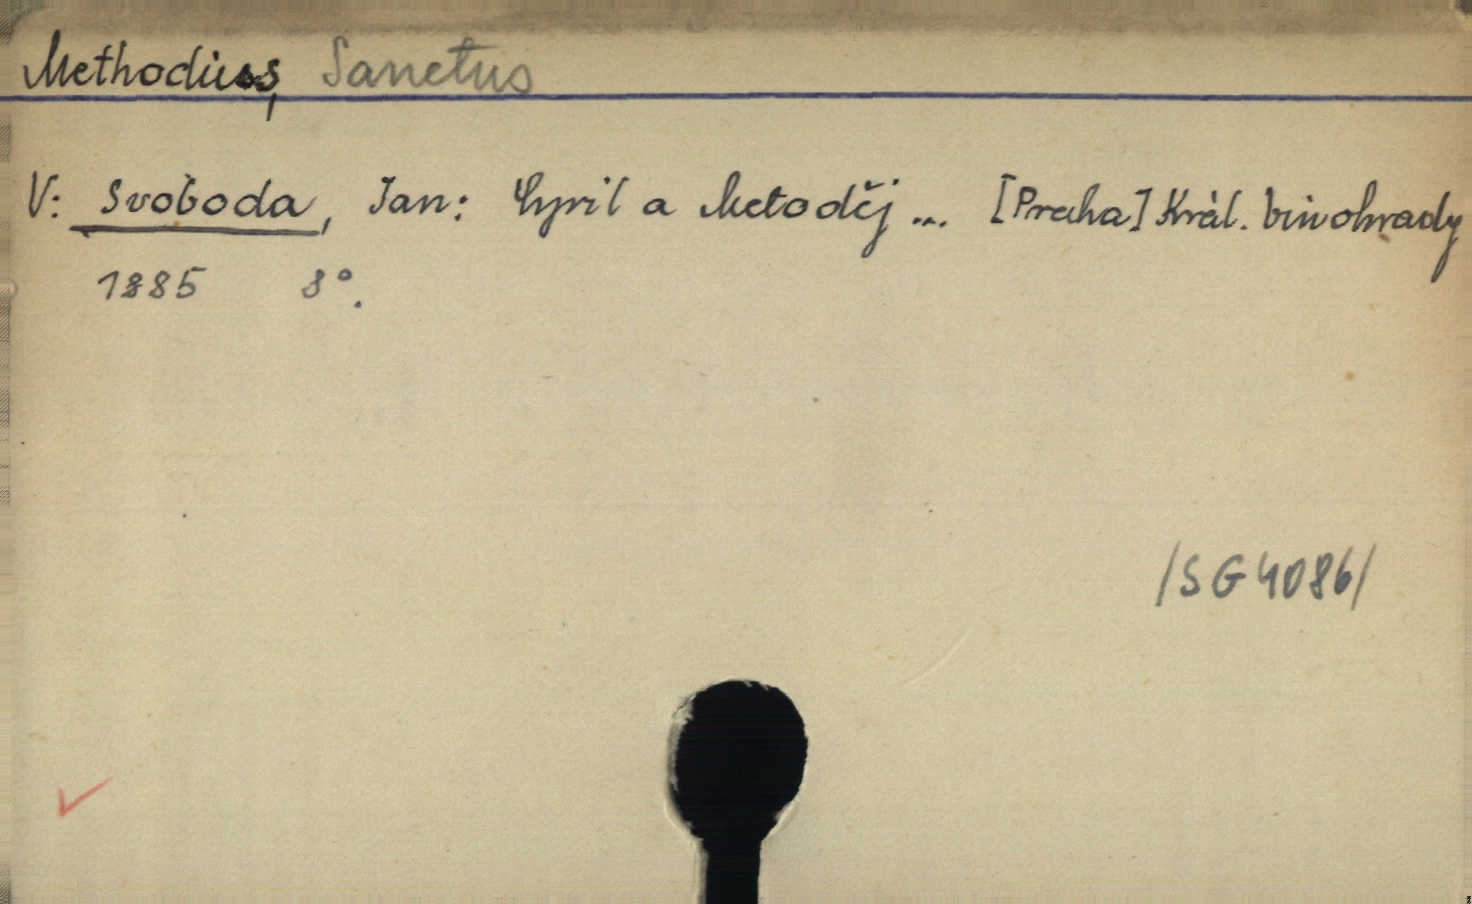 Methodius, Sanctus
V: Svoboda, Jan: Cyril a Metoděj ... [Praha] Král. Vinohrady
1885 8°.
/SG 4086/